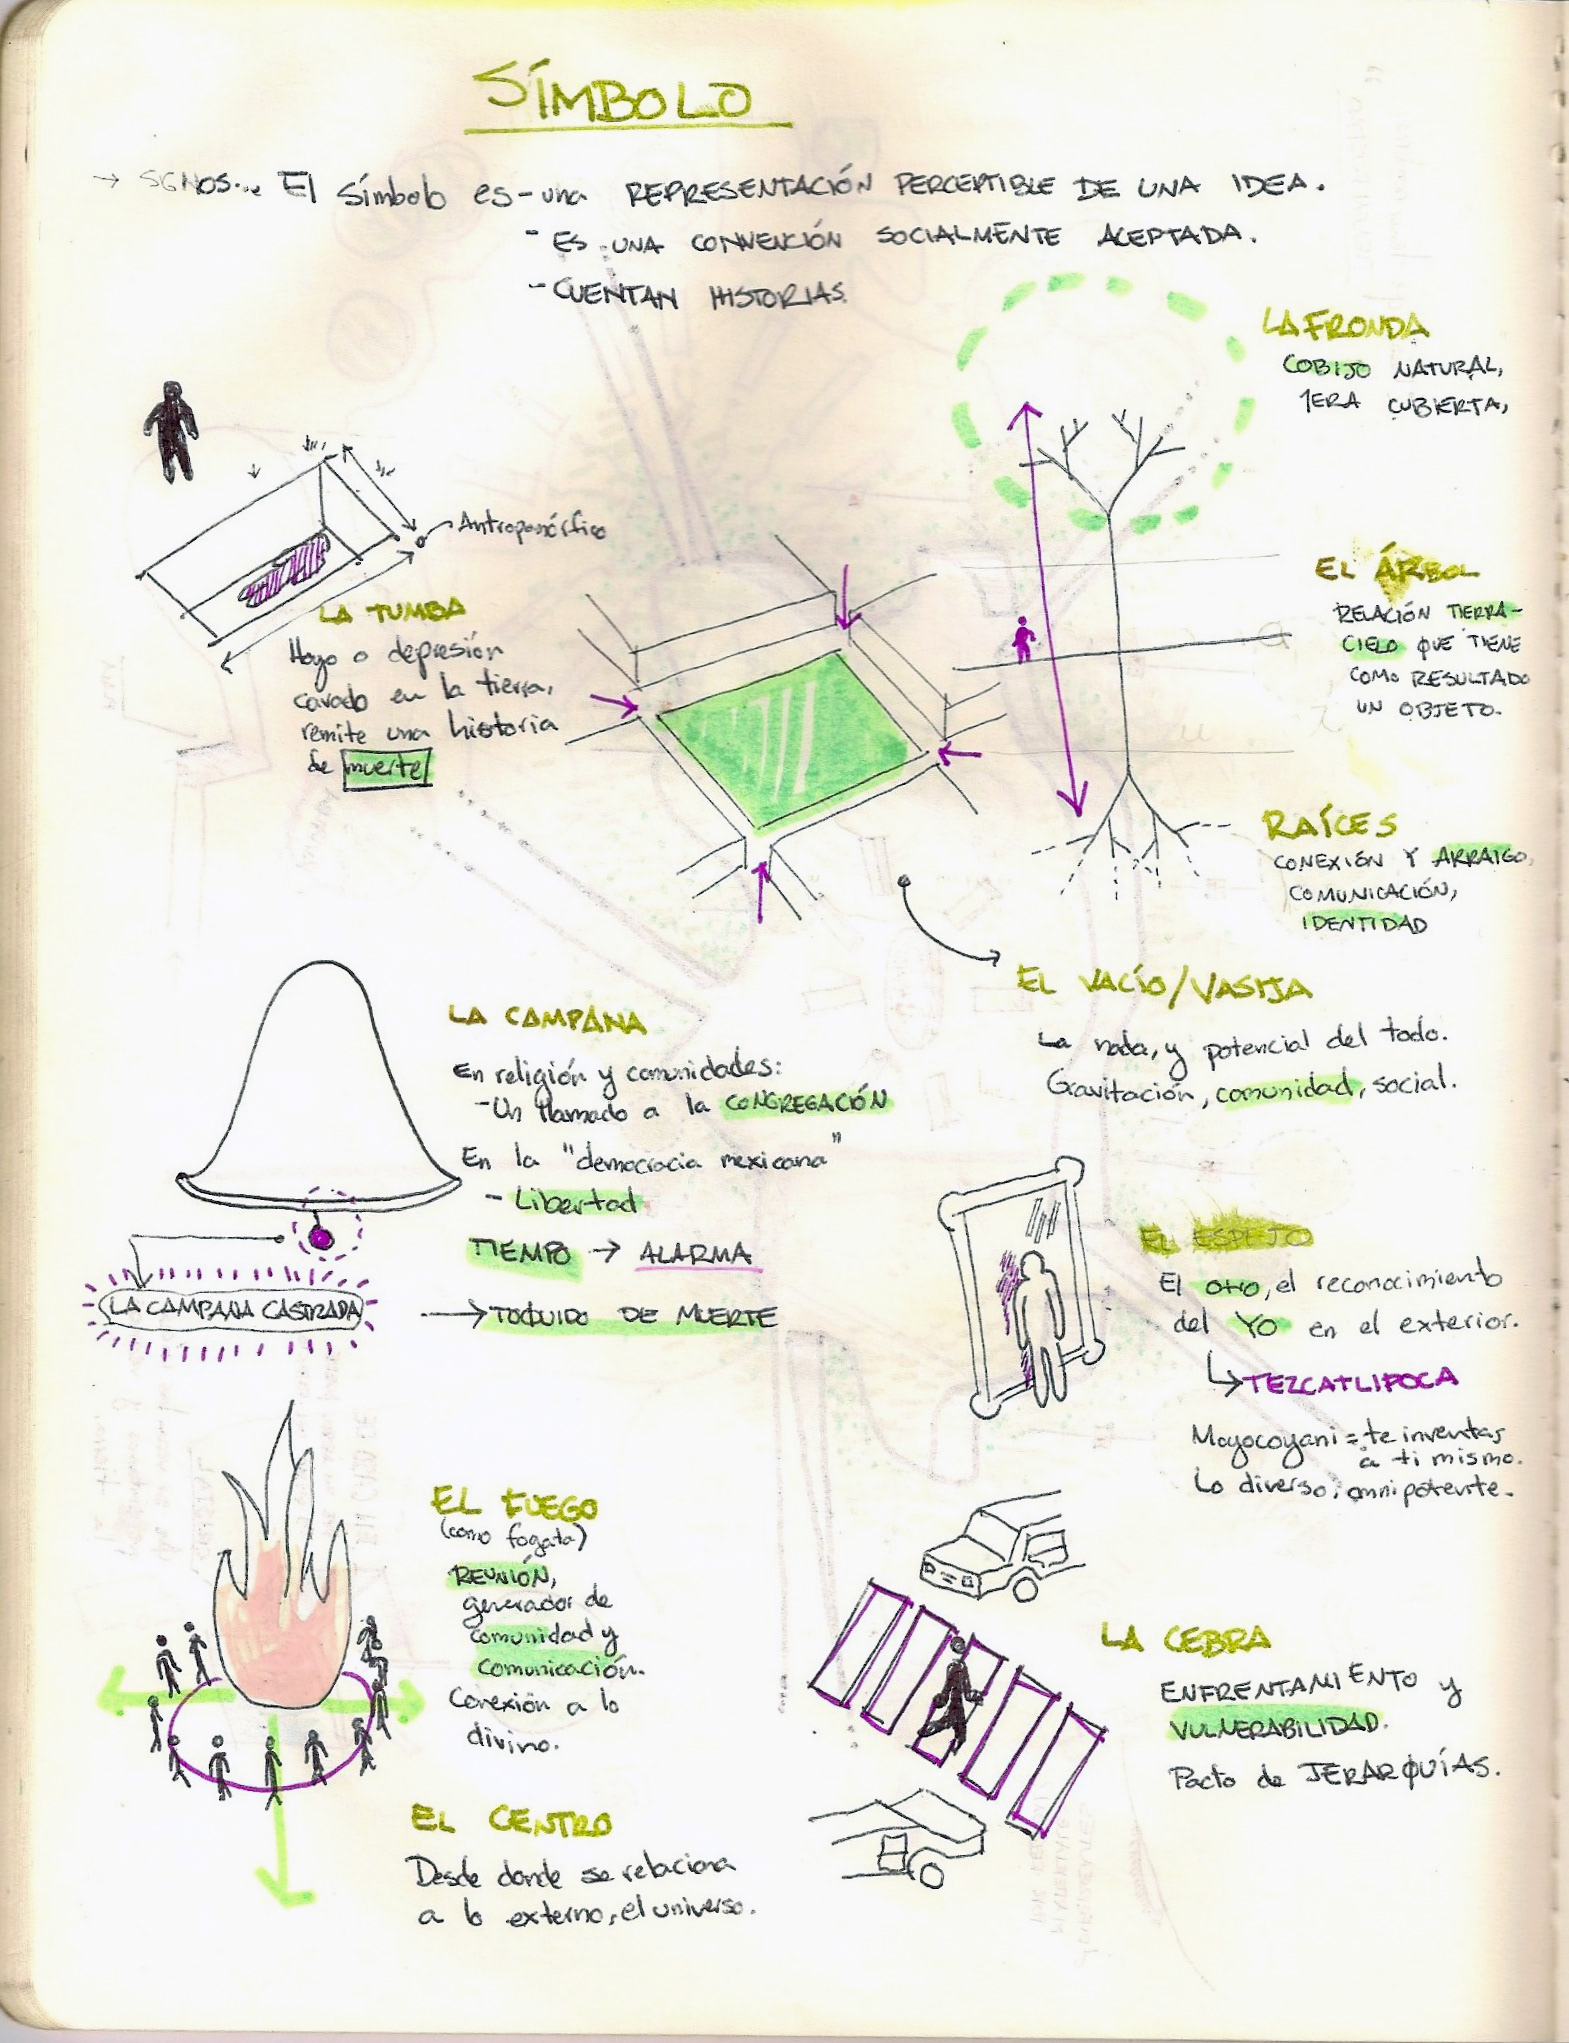 SÍMBOLO
→ SIGNOS... El símbolo es - una REPRESENTACIÓN PERCEPTIBLE DE UNA IDEA.
- ES UNA CONVENCIÓN SOCIALMENTE ACEPTADA.
- CUENTAN HISTORIAS.
LA FRONDA
COBIJO NATURAL,
1ERA CUBIERTA,
Antropomórfico
LA TUMBA
Hoyo o depresión
cavado en la tierra,
remite una historia
de muerte
EL ÁRBOL
RELACIÓN TIERRA-
CIELO QUE TIENE
COMO RESULTADO
UN OBJETO.
RAÍCES
CONEXIÓN Y ARRAIGO,
COMUNICACIÓN,
IDENTIDAD
EL VACÍO/VASIJA
La nada, y potencial del todo.
Gravitación, comunidad, social.
LA CAMPANA
En religión y comunidades:
- Un llamado a la CONGREGACIÓN
En la "democracia mexicana"
- Libertad
TIEMPO → ALARMA
LA CAMPANA CASTRADA → TOQUIDO DE MUERTE
EL ESPEJO
El otro, el reconocimiento
del YO en el exterior.
↳ TEZCATLIPOCA
Moyocoyani = te inventas
a ti mismo.
Lo diverso, omnipotente.
EL FUEGO
(como fogata)
REUNIÓN,
generador de
comunidad y
comunicación.
Conexión a lo
divino.
LA CEBRA
ENFRENTAMIENTO y
VULNERABILIDAD.
Pacto de JERARQUÍAS.
EL CENTRO
Desde donde se relaciona
a lo externo, el universo.